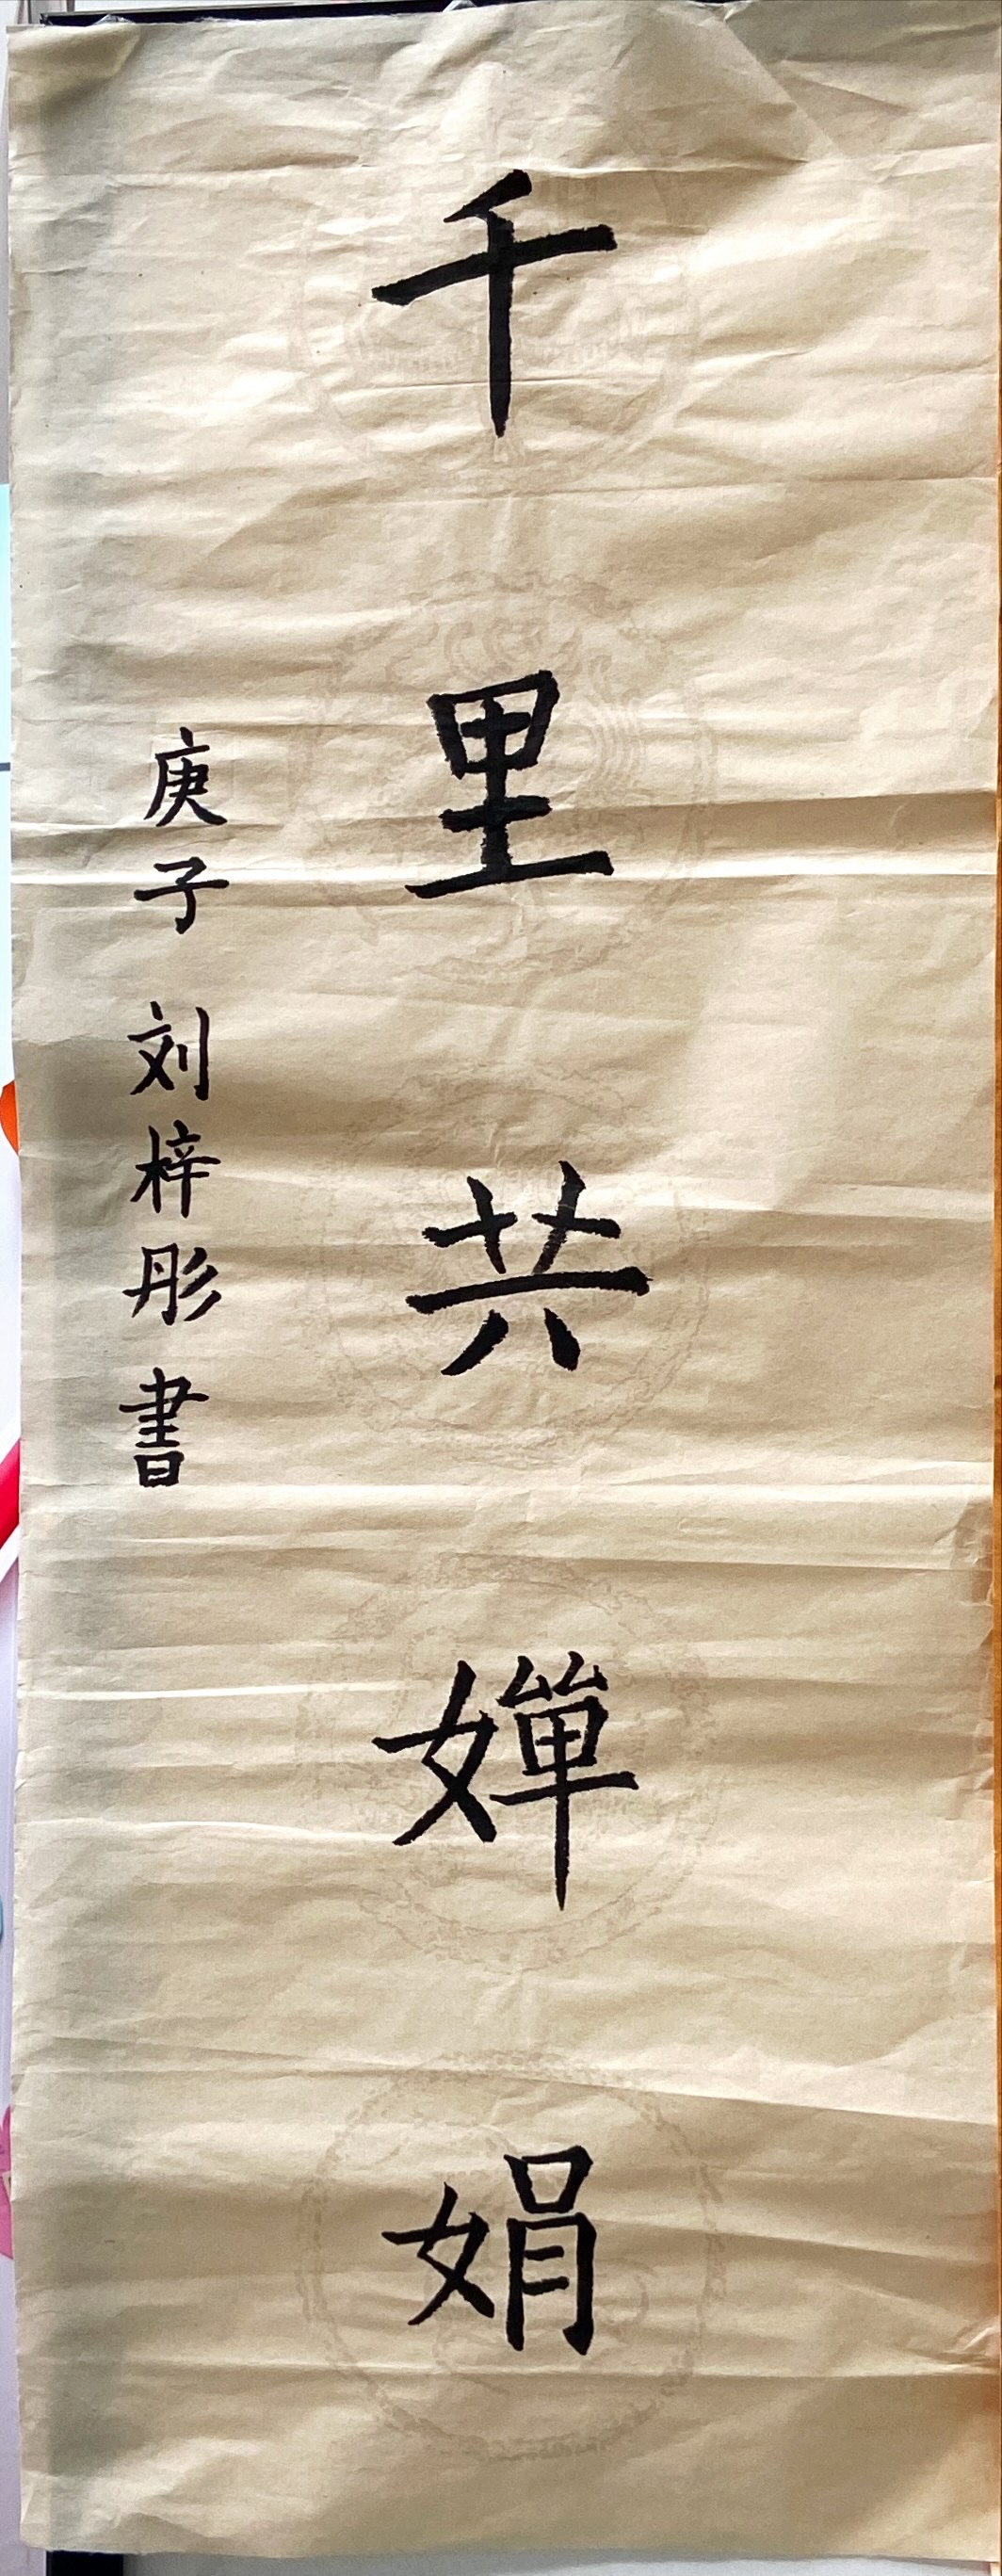 千里共嬋娟
庚子 刘梓彤 書